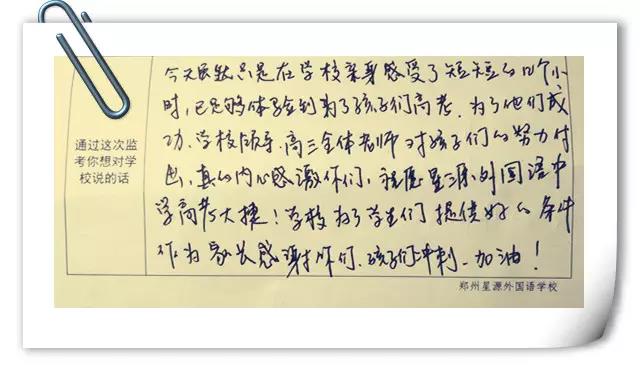 通过这次监
考你想对学
校说的话
今天虽然只是在学校亲身感受了短短的12个小
时,已足够体会到为了孩子们高考.为了他们成
功.学校领导.高三全体老师对孩子们的努力付
出,真的内心感激你们,祝愿星源外国语中
学高考大捷!学校为了学生们提供好的条件
作为家长感谢你们.孩子们冲刺.加油!
郑州星源外国语学校